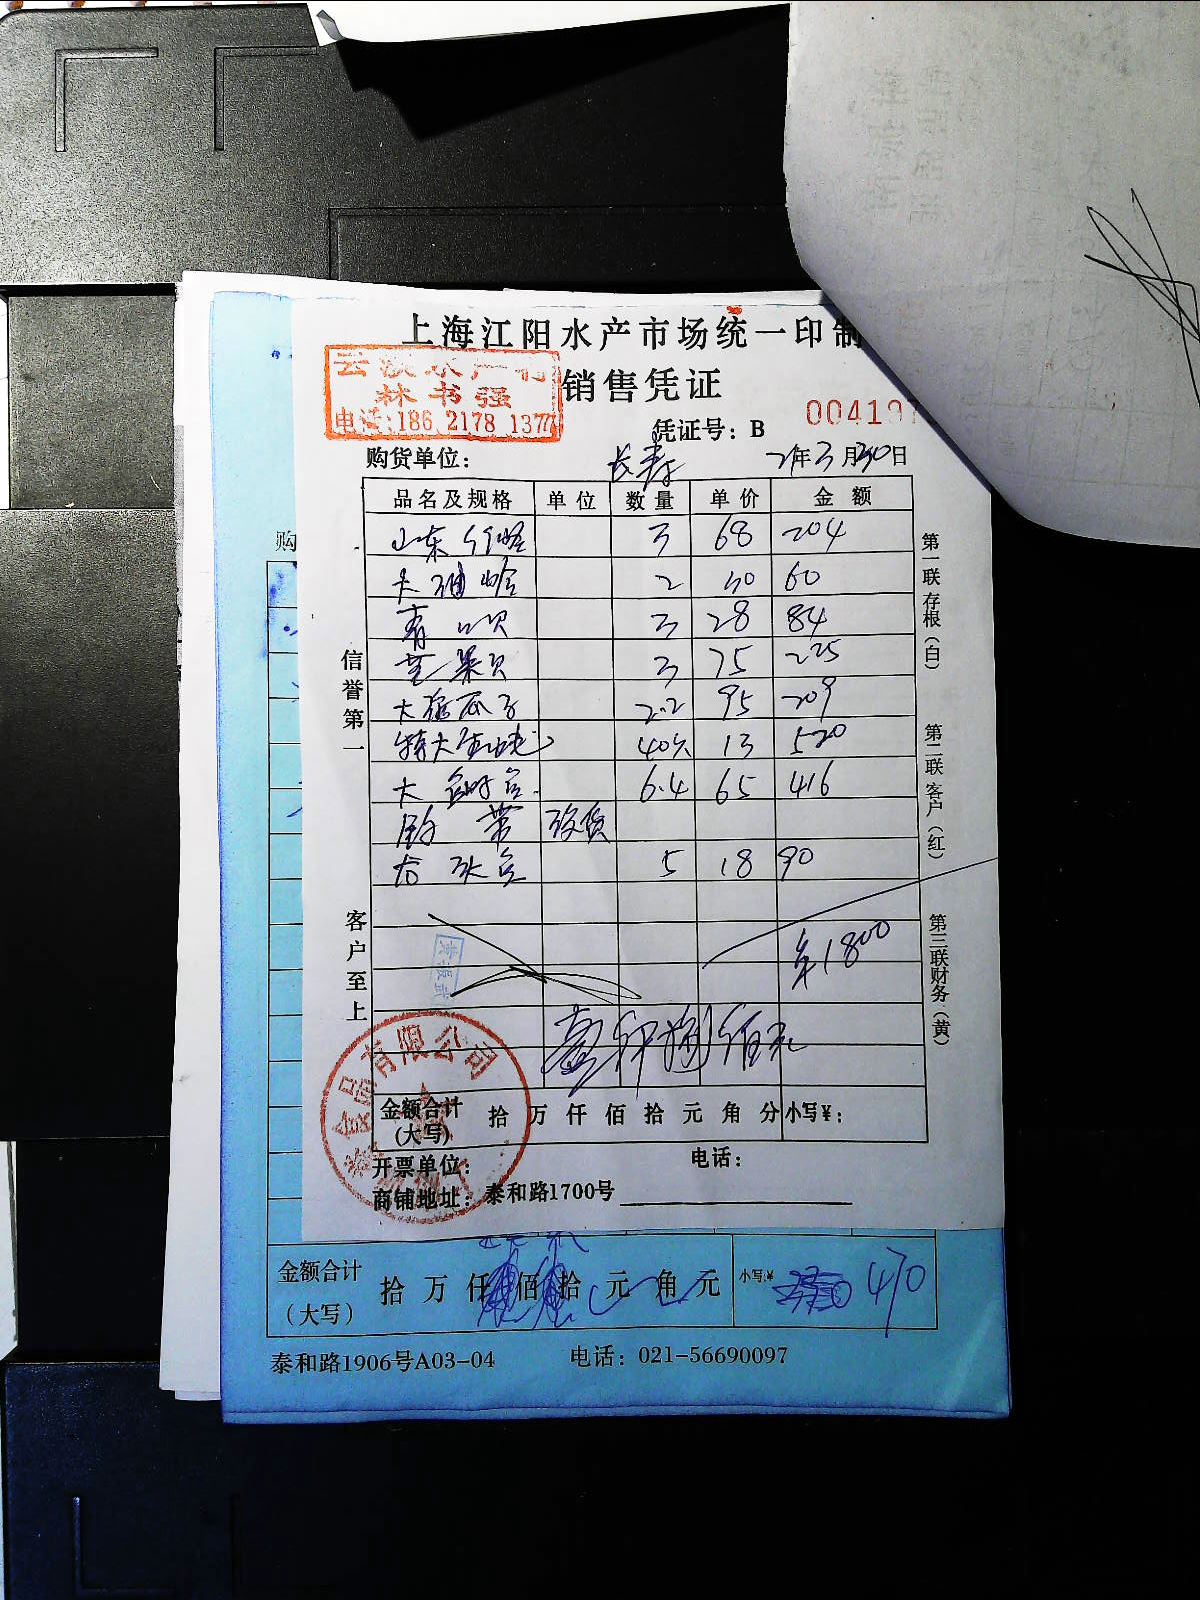 上海江阳水产市场统一印制
林书强
电话:186 2178 1377
销售凭证
凭证号：B 004197
购货单位： 长寿 21年3月30日
品名及规格 单位 数量 单价 金额
山东 3 68 204
大 2 30 60
青口贝 3 28 84
芒果贝 3 75 225
大 瓜子 2.2 95 209
特大 40只 13 520
大 6.4 65 416
5 18 90
¥1800
壹仟捌佰元
信誉第一
客户至上
第一联存根（白）
第二联客户（红）
第三联财务（黄）
食品有限公司
金额合计
(大写)
拾 万 仟 佰 拾 元 角 分 小写¥：
开票单位： 电话：
商铺地址：泰和路1700号
购
金额合计
（大写）
拾 万 仟 佰 拾 元 角 元 小写:¥ 470
泰和路1906号A03-04 电话：021-56690097